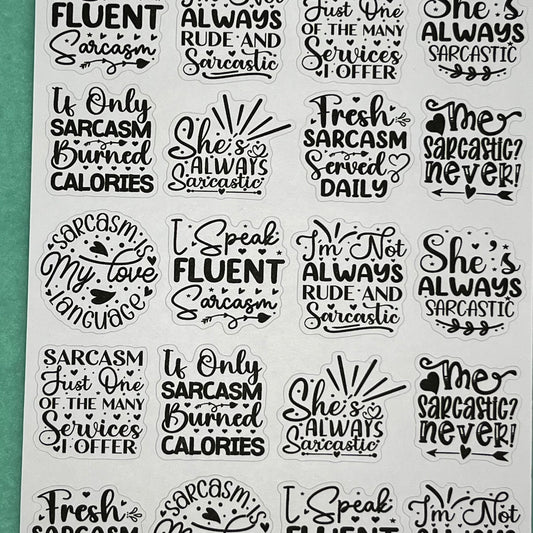 FLUENT
Sarcasm
I'm Not
ALWAYS
RUDE AND
Sarcastic
Just One
OF THE MANY
Services
I OFFER
She's
ALWAYS
SARCASTIC
If Only
SARCASM
Burned
CALORIES
She's
ALWAYS
Sarcastic
Fresh
SARCASM
Served
DAILY
Me
Sarcastic?
never!
SARCASM IS
My love
LANGUAGE
I Speak
FLUENT
Sarcasm
I'm Not
ALWAYS
RUDE AND
Sarcastic
She's
ALWAYS
SARCASTIC
SARCASM
Just One
OF THE MANY
Services
I OFFER
If Only
SARCASM
Burned
CALORIES
She's
ALWAYS
Sarcastic
Me
Sarcastic?
never!
Fresh
SARCASM
SARCASM IS
My love
I Speak
FLUENT
I'm Not
ALWAYS